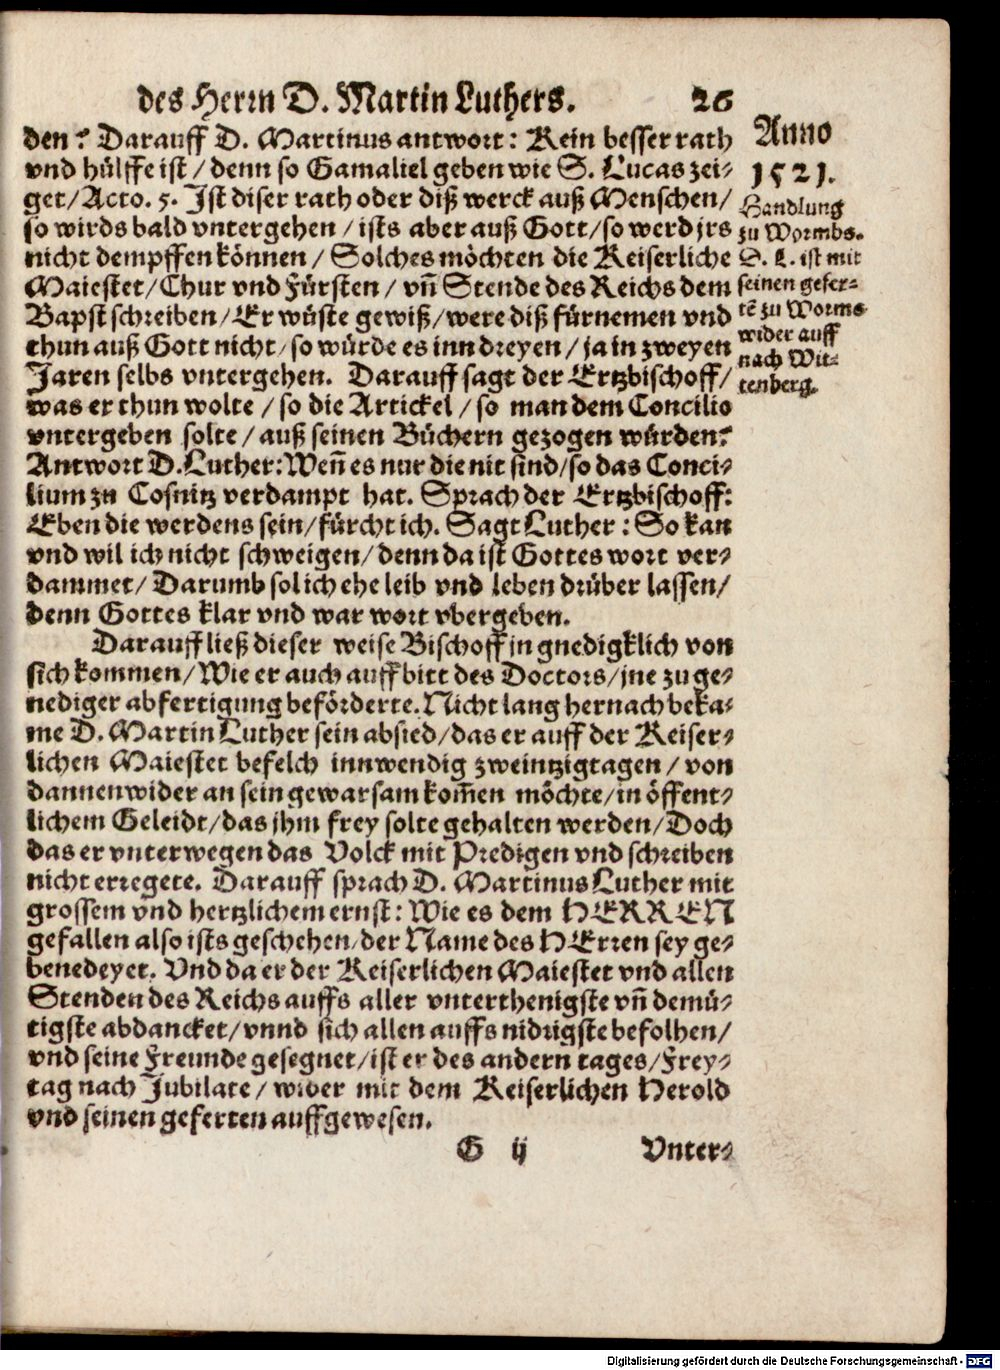 des Herrn D. Martin Luthers. 26
den? Darauff D. Martinus antwort: Kein besser rath
vnd hülffe ist / denn so Gamaliel geben wie S. Lucas zei-
get/ Acto. 5. Ist diser rath oder diß werck auß Menschen/
so wirds bald vntergehen / ists aber auß Gott/ so werd jrs
nicht dempffen können / Solches möchten die Keiserliche
Maiestet/ Chur vnd Fürsten / vñ Stende des Reichs dem
Bapst schreiben/ Er wüste gewiß/ were diß fürnemen vnd
thun auß Gott nicht/ so würde es inn dreyen / ja in zweyen
Jaren selbs vntergehen. Darauff sagt der Ertzbischoff/
was er thun wolte / so die Artickel / so man dem Concilio
vntergeben solte / auß seinen Büchern gezogen würden?
Antwort D. Luther: Weñ es nur die nit sind/ so das Conci-
lium zu Cosnitz verdampt hat. Sprach der Ertzbischoff:
Eben die werdens sein/ fürcht ich. Sagt Luther: So kan
vnd wil ich nicht schweigen/ denn da ist Gottes wort ver-
dammet/ Darumb sol ich ehe leib vnd leben drüber lassen/
denn Gottes klar vnd war wort vbergeben.
Darauff ließ dieser weise Bischoff jn gnedigklich von
sich kommen/ Wie er auch auff bitt des Doctors/ jne zu ge-
nediger abfertigung beförderte. Nicht lang hernach beka-
me D. Martin Luther sein absied/ das er auff der Keiser-
lichen Maiestet befelch innwendig zweintzig tagen / von
dannen wider an sein gewarsam kom̃en möchte/ in öffent-
lichem Geleidt/ das jhm frey solte gehalten werden/ Doch
das er vnterwegen das Volck mit Predigen vnd schreiben
nicht erregete. Darauff sprach D. Martinus Luther mit
grossem vnd hertzlichem ernst: Wie es dem HERREN
gefallen also ists geschehen/ der Name des HErren sey ge-
benedeyet. Vnd da er der Keiserlichen Maiestet vnd allen
Stenden des Reichs auffs aller vnterthenigste vñ demü-
tigste abdancket/ vnnd sich allen auffs nidrigste befolhen/
vnd seine Freunde gesegnet/ ist er des andern tages/ Frey-
tag nach Jubilate / wider mit dem Keiserlichen Herold
vnd seinen geferten auffgewesen.
G ij Vnter-
Anno
1521.
Handlung
zu Wormbs.
D. L. ist mit
seinen gefer-
tẽ zu Worms
wider auff
nach Wit-
tenberg.
Digitalisierung gefördert durch die Deutsche Forschungsgemeinschaft - DFG